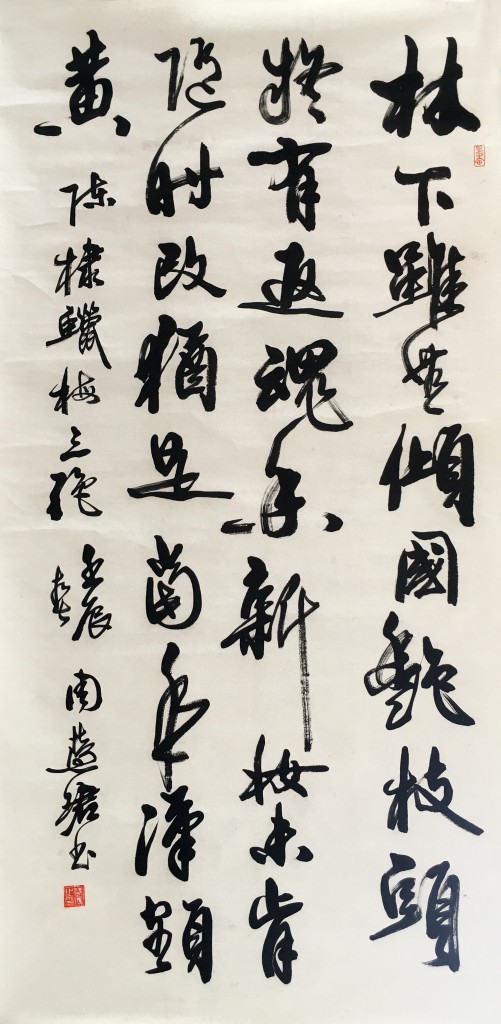 林下雖無傾國艷枝頭
疑有返魂香新妝未肯
隨时改猶是當年漢額
黃 陳棣蠟梅三絕 壬辰春 周 书